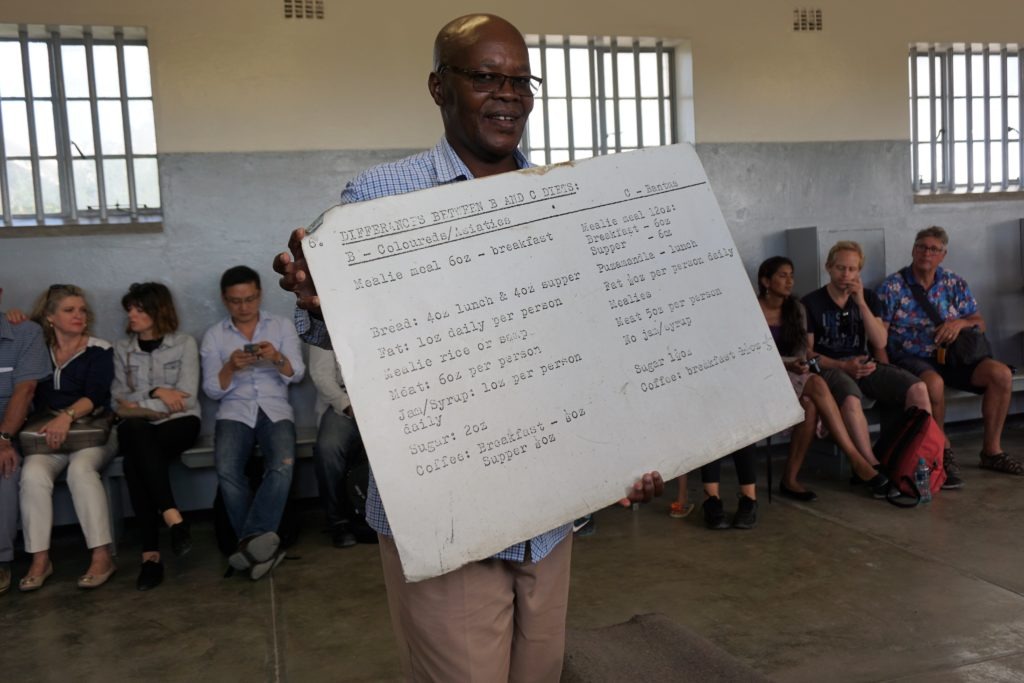 8. DIFFERANCES BETWEEN B AND C DIETS:
B - Coloureds/Asiaties
Mealie meal 6oz - breakfast
Bread: 4oz lunch & 4oz supper
Fat: 1oz daily per person
Mealie rice or samp
Meat: 6oz per person
Jam/Syrup: 1oz per person
daily
Sugar: 2oz
Coffee: Breakfast -
Supper
C - Bantus
Mealie meal 12oz:
Breakfast - 6oz
Supper - 6oz
Puzamandla - lunch
Fat ½oz per person daily
Mealies
Meat 5oz per person
No jam/syrup
Sugar
Coffee: breakfast